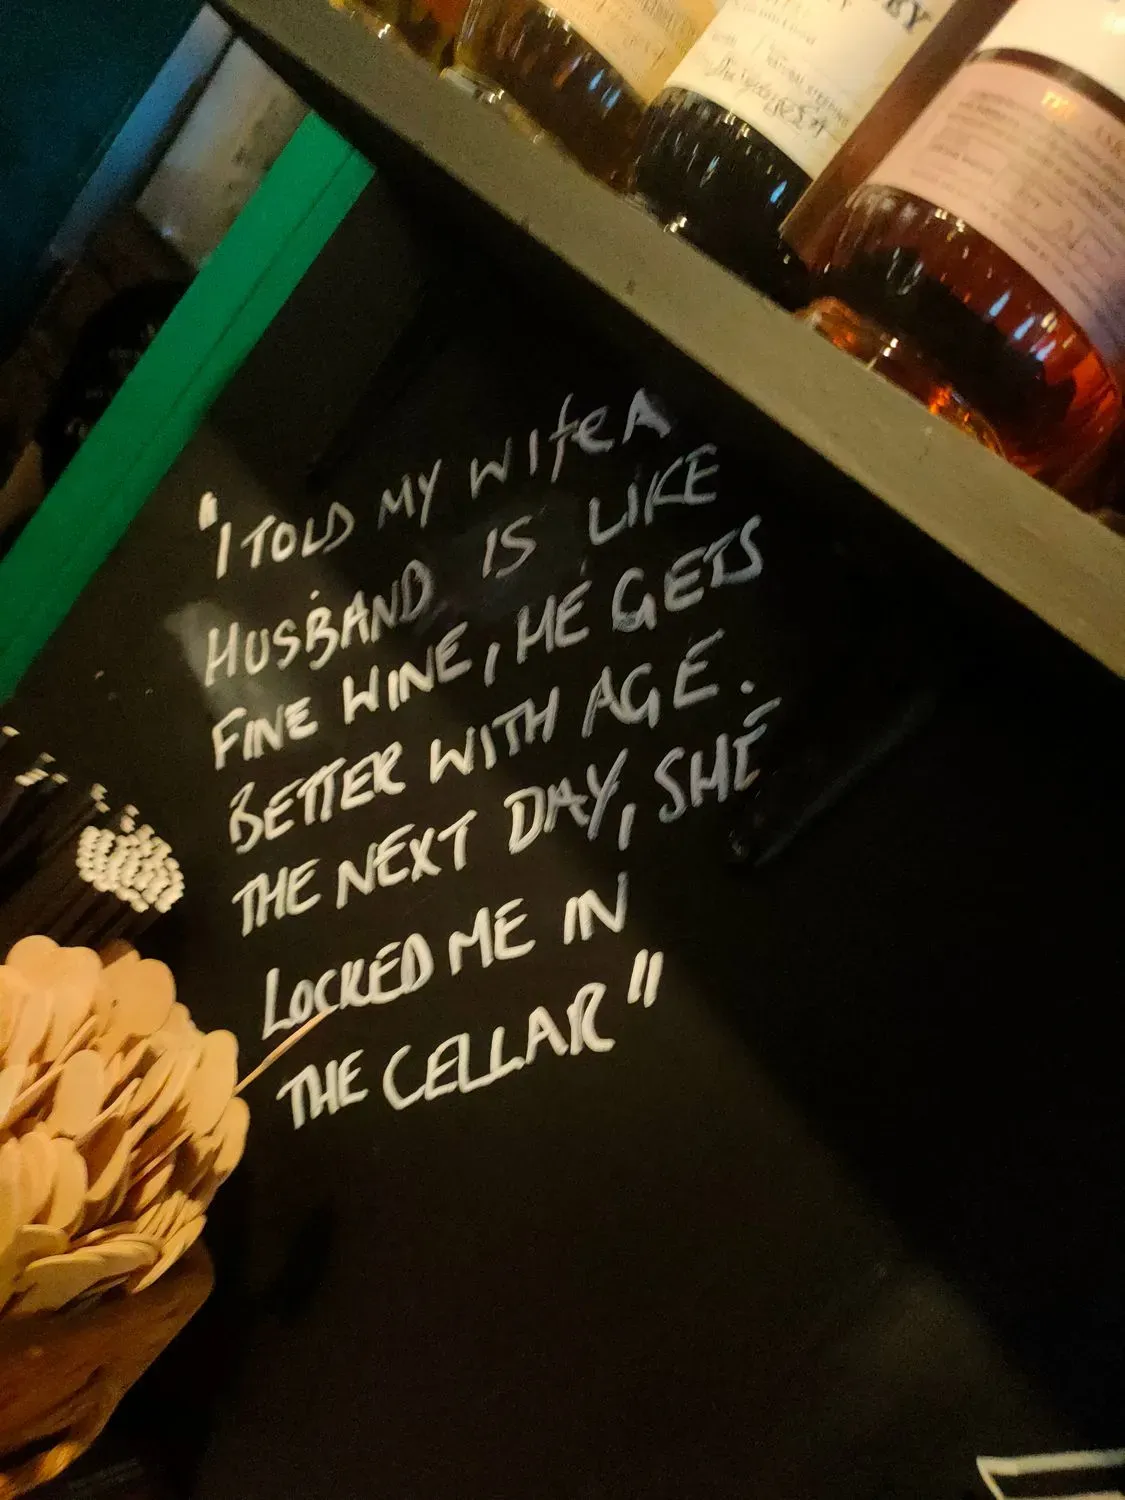 "I TOLD MY WIFE A
HUSBAND IS LIKE
FINE WINE, HE GETS
BETTER WITH AGE.
THE NEXT DAY, SHE
LOCKED ME IN
THE CELLAR"